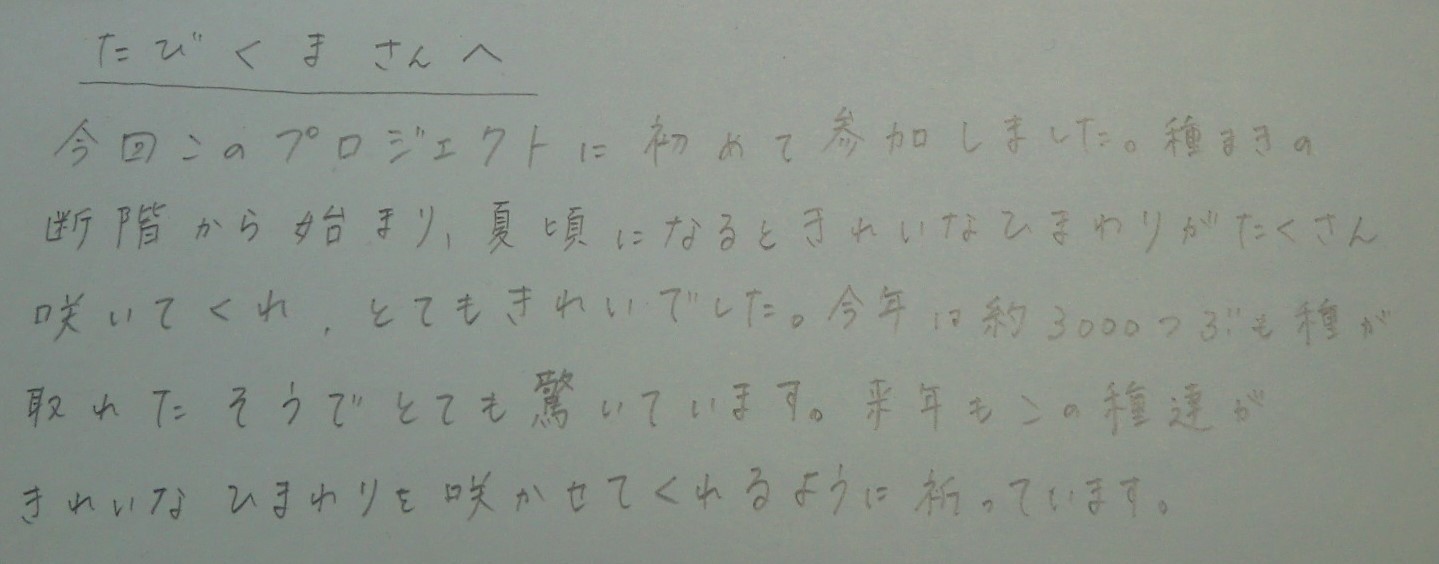 たびくまさんへ
今回このプロジェクトに初めて参加しました。種まきの
断階から始まり、夏頃になるときれいなひまわりがたくさん
咲いてくれ、とてもきれいでした。今年は約3000つぶも種が
取れたそうでとても驚いています。来年もこの種達が
きれいなひまわりを咲かせてくれるように祈っています。